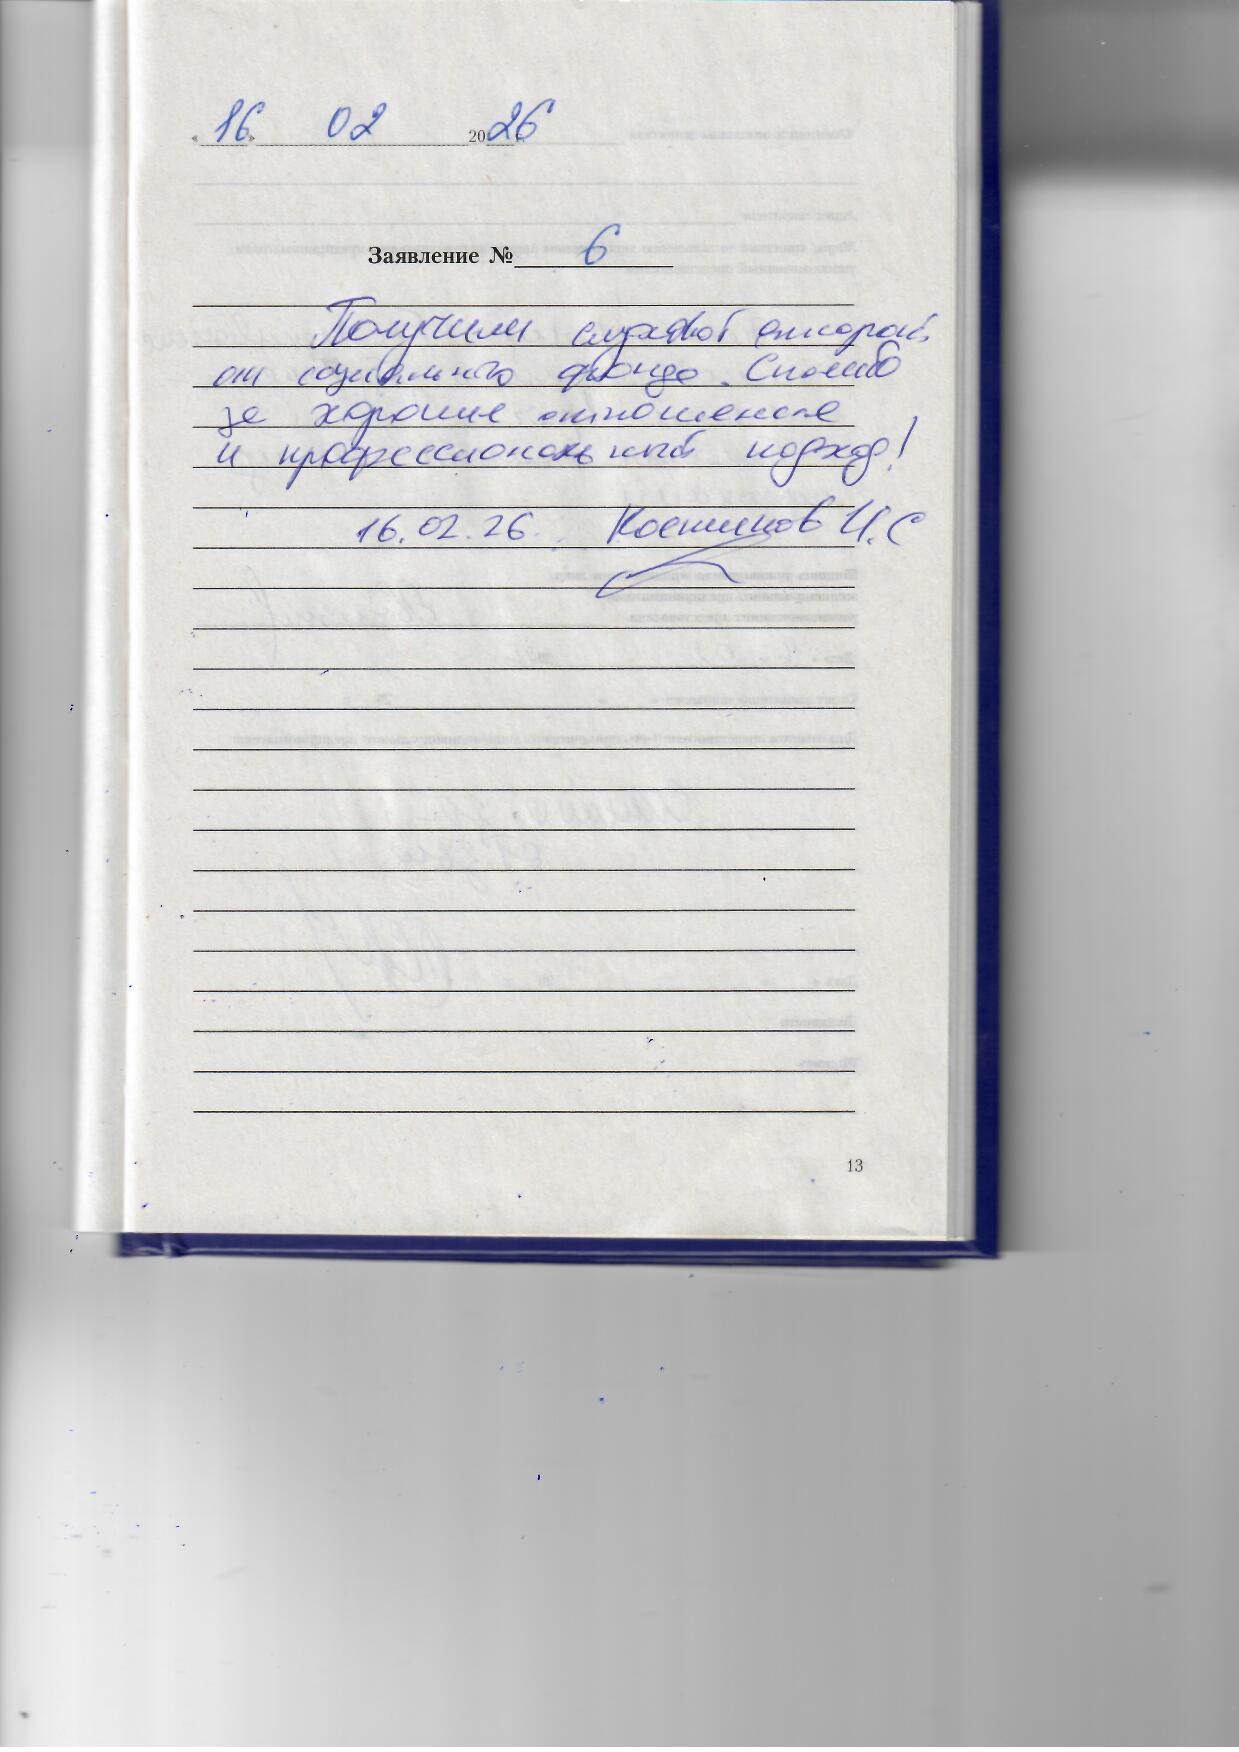 «16» 02 2026 г.
Заявление № 6
Получили слуховой аппарат
от социального фонда. Спасибо
за хорошие отношение
и профессиональный подход!
16.02.26. И.С
13